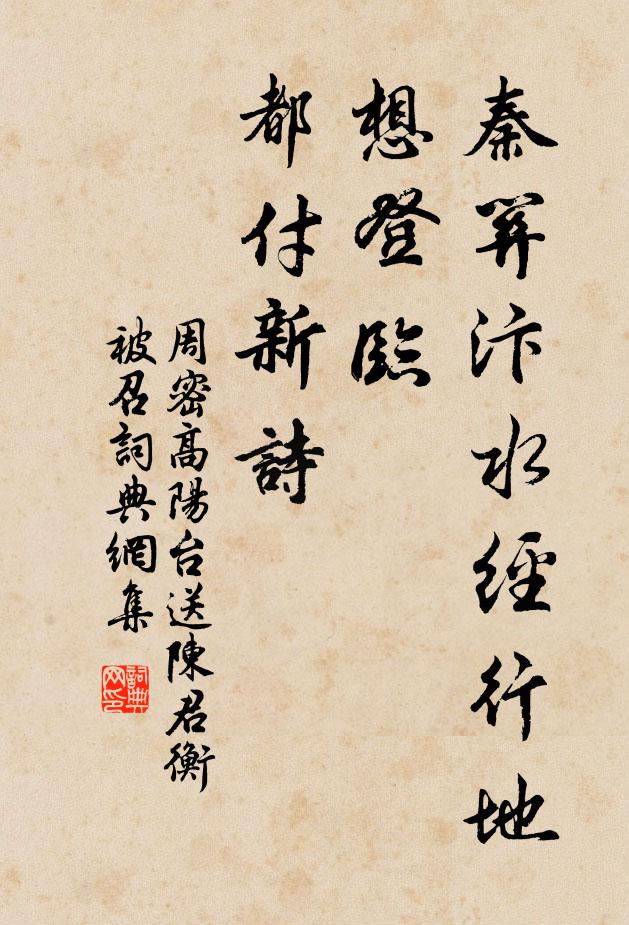 秦關汴水經行地
想登臨
都付新詩
周密高陽台送陳君衡
被召詞典網集
詞典
网印